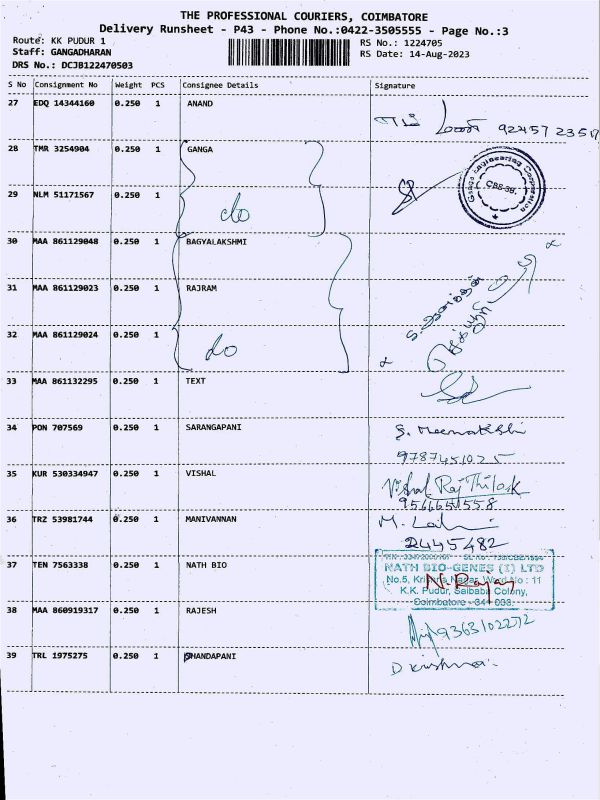 THE PROFESSIONAL COURIERS, COIMBATORE
Delivery Runsheet - P43 - Phone No.:0422-3505555 - Page No.:3
Route: KK PUDUR 1
RS No.: 1224705
Staff: GANGADHARAN
RS Date: 14-Aug-2023
DRS No.: DCJB122470503
S No Consignment No Weight PCS Consignee Details Signature
27 EDQ 14344160 0.250 1 ANAND
28 TMR 3254904 0.250 1 GANGA
Ganga Engineering Corporation
CBE-38.
29 NLM 51171567 0.250 1 do
30 MAA 861129048 0.250 1 BAGYALAKSHMI
31 MAA 861129023 0.250 1 RAJRAM
32 MAA 861129024 0.250 1 do
33 MAA 861132295 0.250 1 TEXT
34 PON 707569 0.250 1 SARANGAPANI S. Meenakshi
9787451025
35 KUR 530334947 0.250 1 VISHAL Vishal Raj Thilak
9566651558
36 TRZ 53981744 0.250 1 MANIVANNAN
2445482
37 TEN 7563338 0.250 1 NATH BIO
NATH BIO-GENES (I) LTD
No.5, Krishna Nagar, Ward No : 11
K.K. Pudur, Saibaba Colony,
Coimbatore - 641 038.
38 MAA 860919317 0.250 1 RAJESH 9363102272
39 TRL 1975275 0.250 1 DHANDAPANI